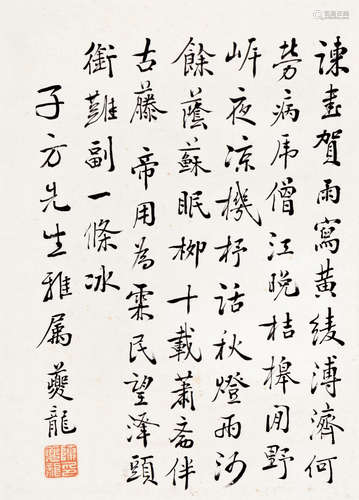 諫書賀雨寫黃綾溥濟何
勞病虎僧江晚桔槔閒野
岸夜涼機杼話秋燈兩沙
餘蔭蘇眠柳十載蕭齋伴
古藤帝用為霖民望澤頭
銜難副一條冰
子方先生雅屬夔龍